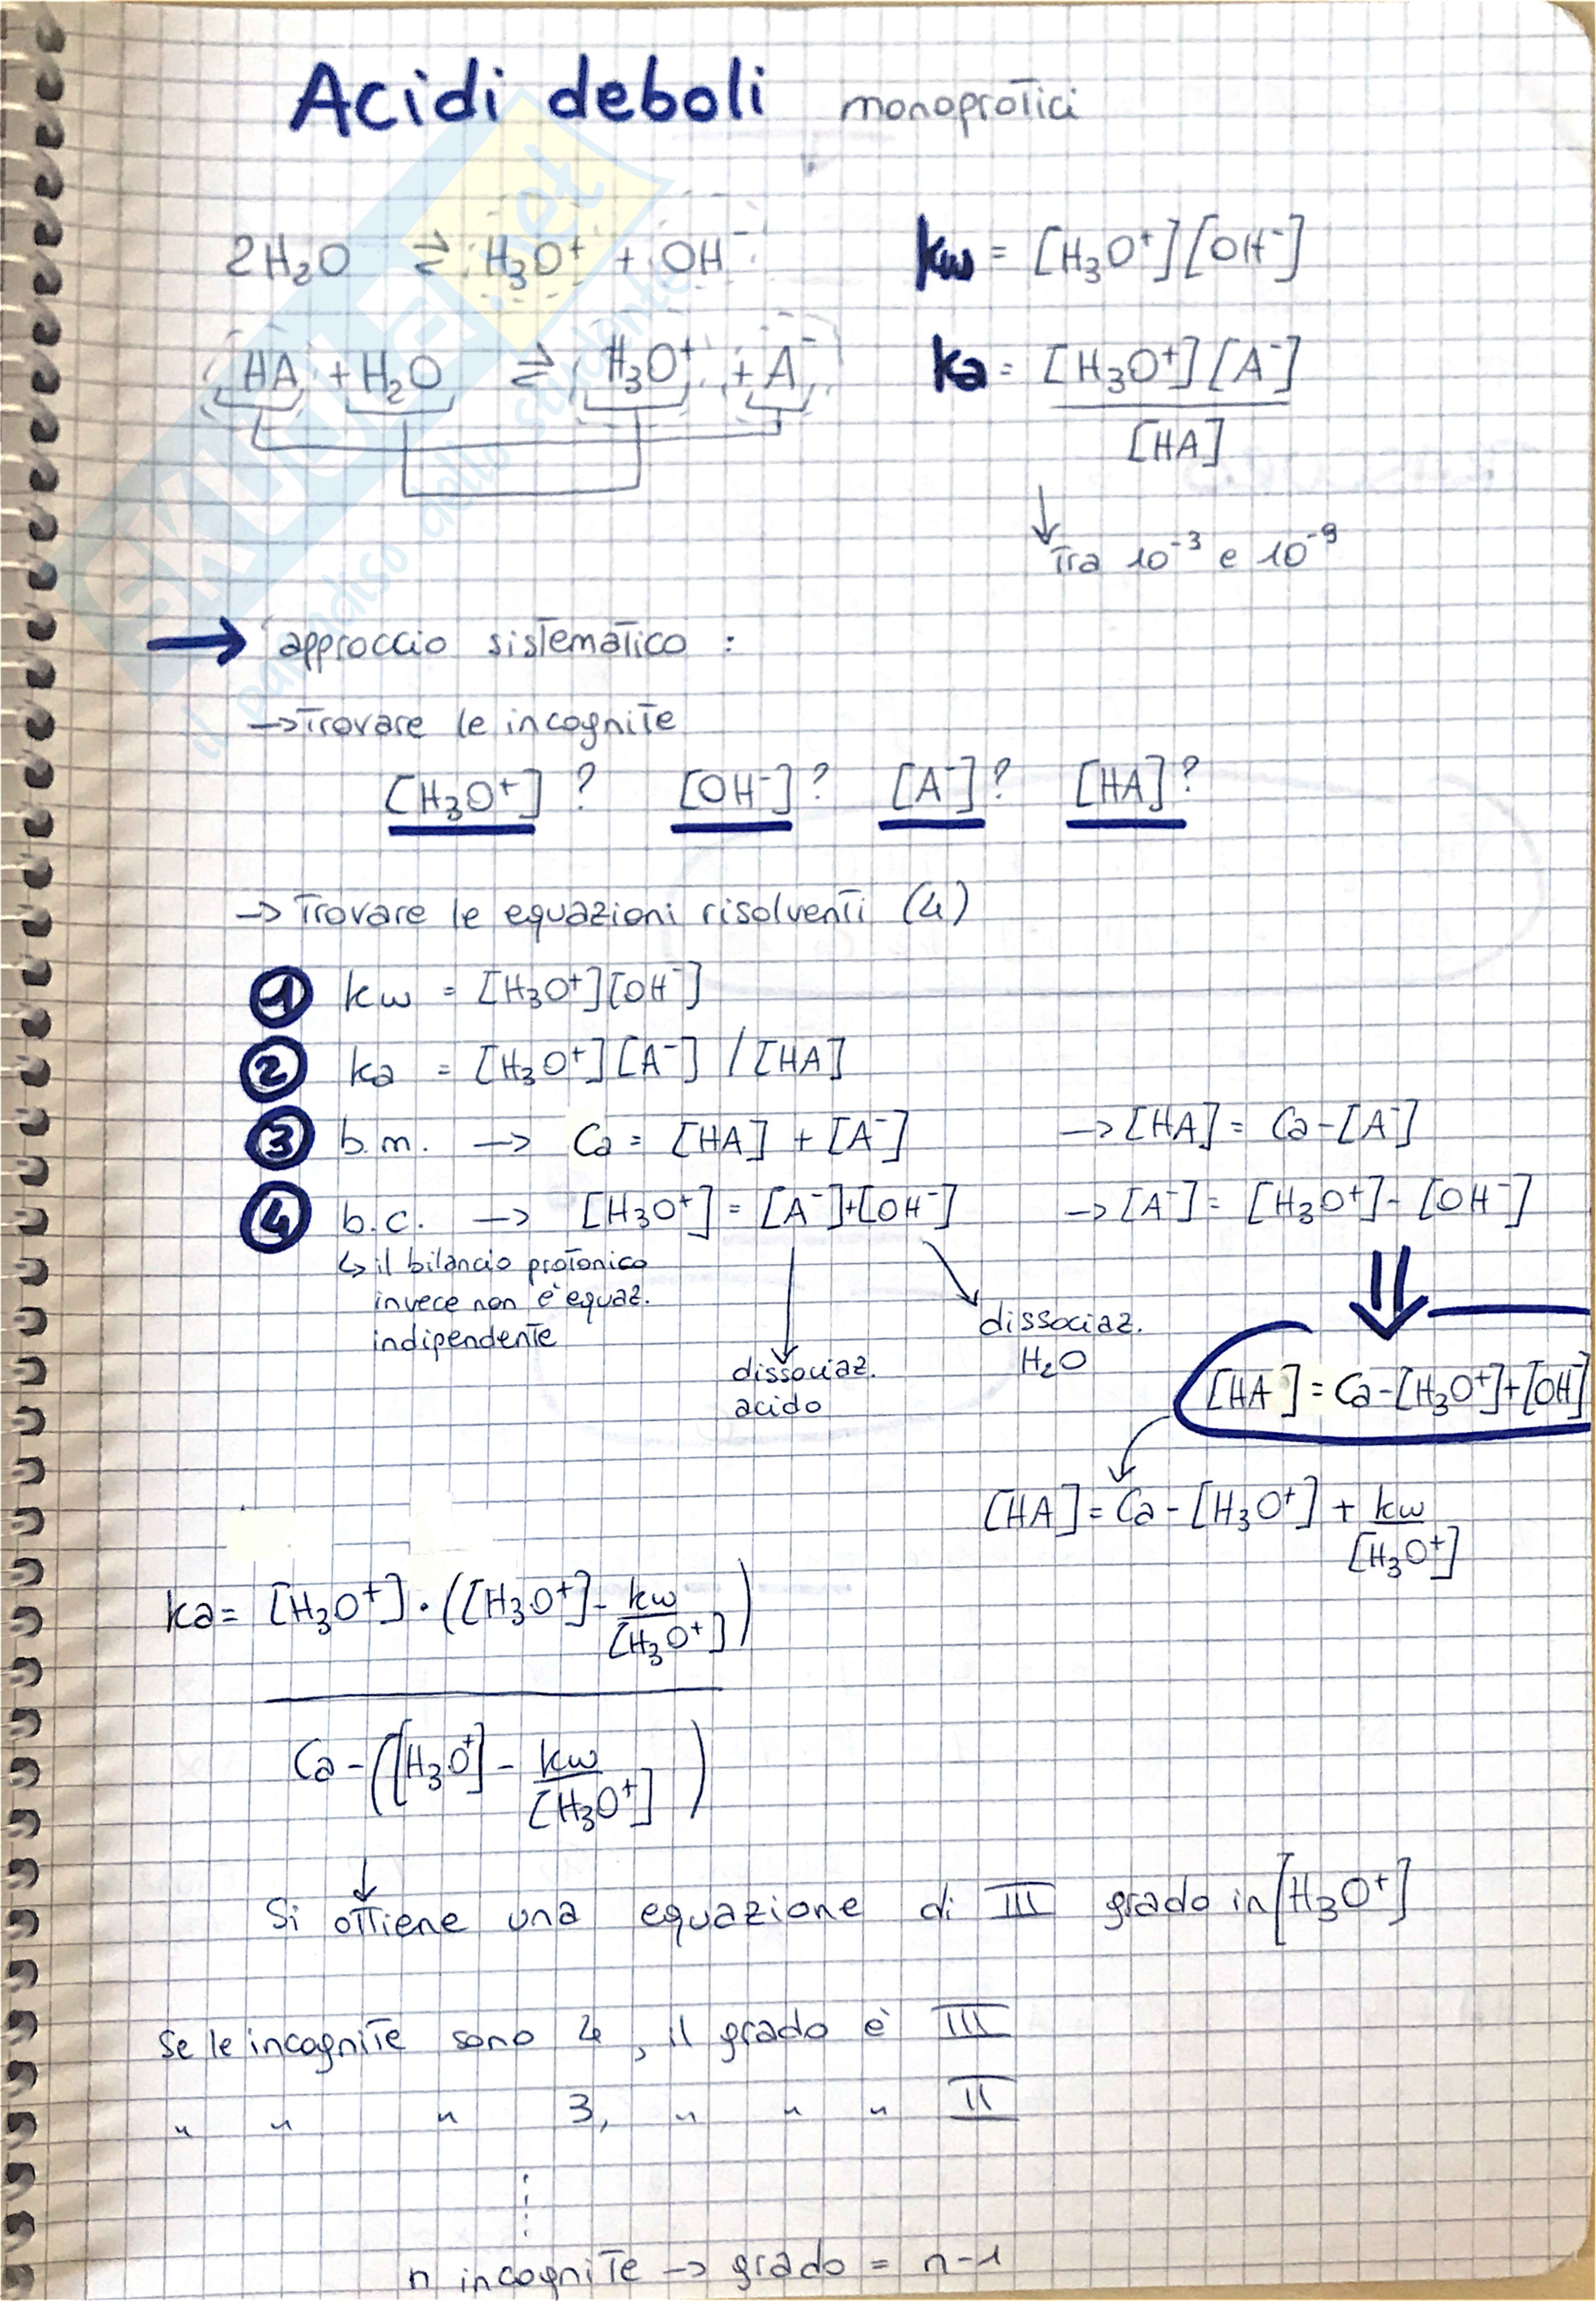 Acidi deboli monoprotici
2H₂O ⇌ H₃O⁺ + OH⁻ kw = [H₃O⁺][OH⁻]
HA + H₂O ⇌ H₃O⁺ + A⁻ ka = [H₃O⁺][A⁻]
[HA]
↓ Tra 10⁻³ e 10⁻⁹
→ approccio sistematico :
→ Trovare le incognite
[H₃O⁺] ? [OH⁻] ? [A⁻] ? [HA] ?
→ Trovare le equazioni risolventi (4)
1 kw = [H₃O⁺][OH⁻]
2 ka = [H₃O⁺][A⁻] / [HA]
3 b.m. → Ca = [HA] + [A⁻] → [HA] = Ca - [A⁻]
4 b.c. → [H₃O⁺] = [A⁻]+[OH⁻] → [A⁻] = [H₃O⁺] - [OH⁻]
↳ il bilancio protonico
invece non è equaz.
indipendente
dissociaz.
acido
dissociaz.
H₂O
[HA] = Ca - [H₃O⁺] + [OH]
[HA] = Ca - [H₃O⁺] + kw
[H₃O⁺]
ka = [H₃O⁺] · ([H₃O⁺] - kw
[H₃O⁺])
Ca - ([H₃O⁺] - kw
[H₃O⁺])
↓
Si ottiene una equazione di III grado in [H₃O⁺]
Se le incognite sono 4, il grado è III
" " " 3, " " " II
n incognite → grado = n-1
SKUOLA.net
il paradiso dello studente